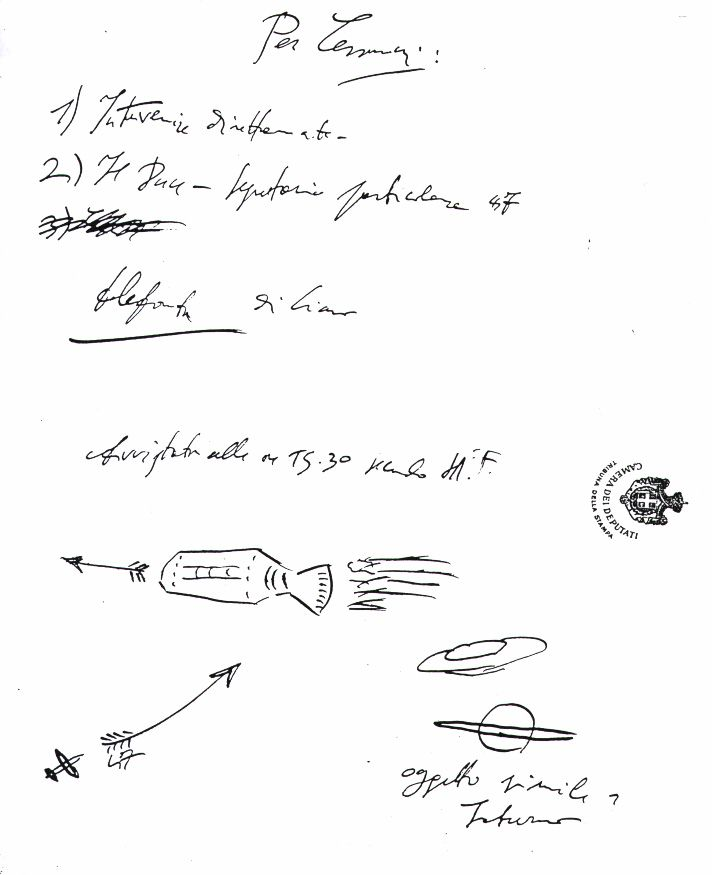 Per
1) Intervenire direttamente -
2) Il Duce - Segreteria particolare 47
telefonata di Ciano
Avvistato alle ore 15.30 secondo M.F.
CAMERA DEI DEPUTATI
TRIBUNA DELLA STAMPA
47
oggetto simile a
Saturno